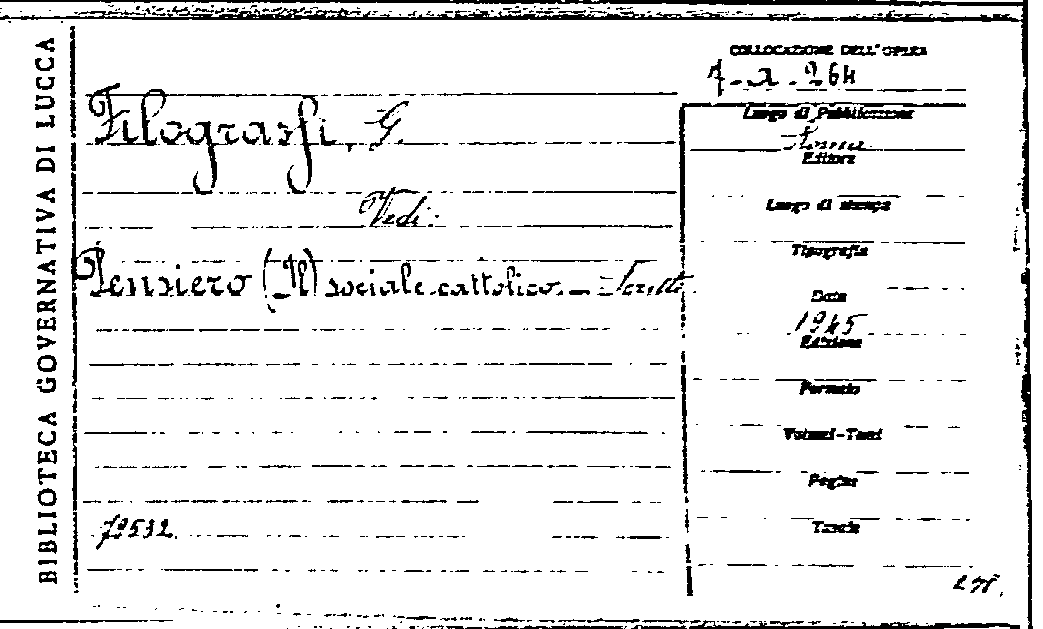 BIBLIOTECA GOVERNATIVA DI LUCCA
COLLOCAZIONE DELL'OPERA
7-a-264
Filograssi, G.
Luogo di Pubblicazione
Roma
Editore
Vedi:
Luogo di stampa
Tipografia
Pensiero (Il) sociale cattolico. - Scritti
Data
1945
Edizione
Formato
Volumi-Tomi
Pagine
Tavole
79532.